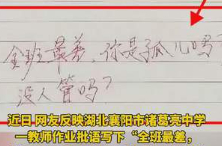 全班最差，你是孤儿吗？
没人管吗？
近日 网友反映湖北襄阳市诸葛亮中学
一教师作业批语写下“全班最差，